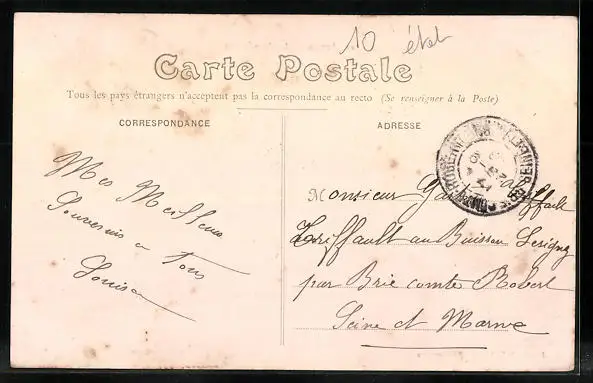 10 état
Carte Postale
Tous les pays étrangers n'acceptent pas la correspondance au recto (Se renseigner à la Poste)
CORRESPONDANCE
ADRESSE
Mes Meilleurs
Souvenirs a Tous
Louisa
Monsieur
Triffault au Buisson Lesigny
par Brie comte Robert
Seine et Marne